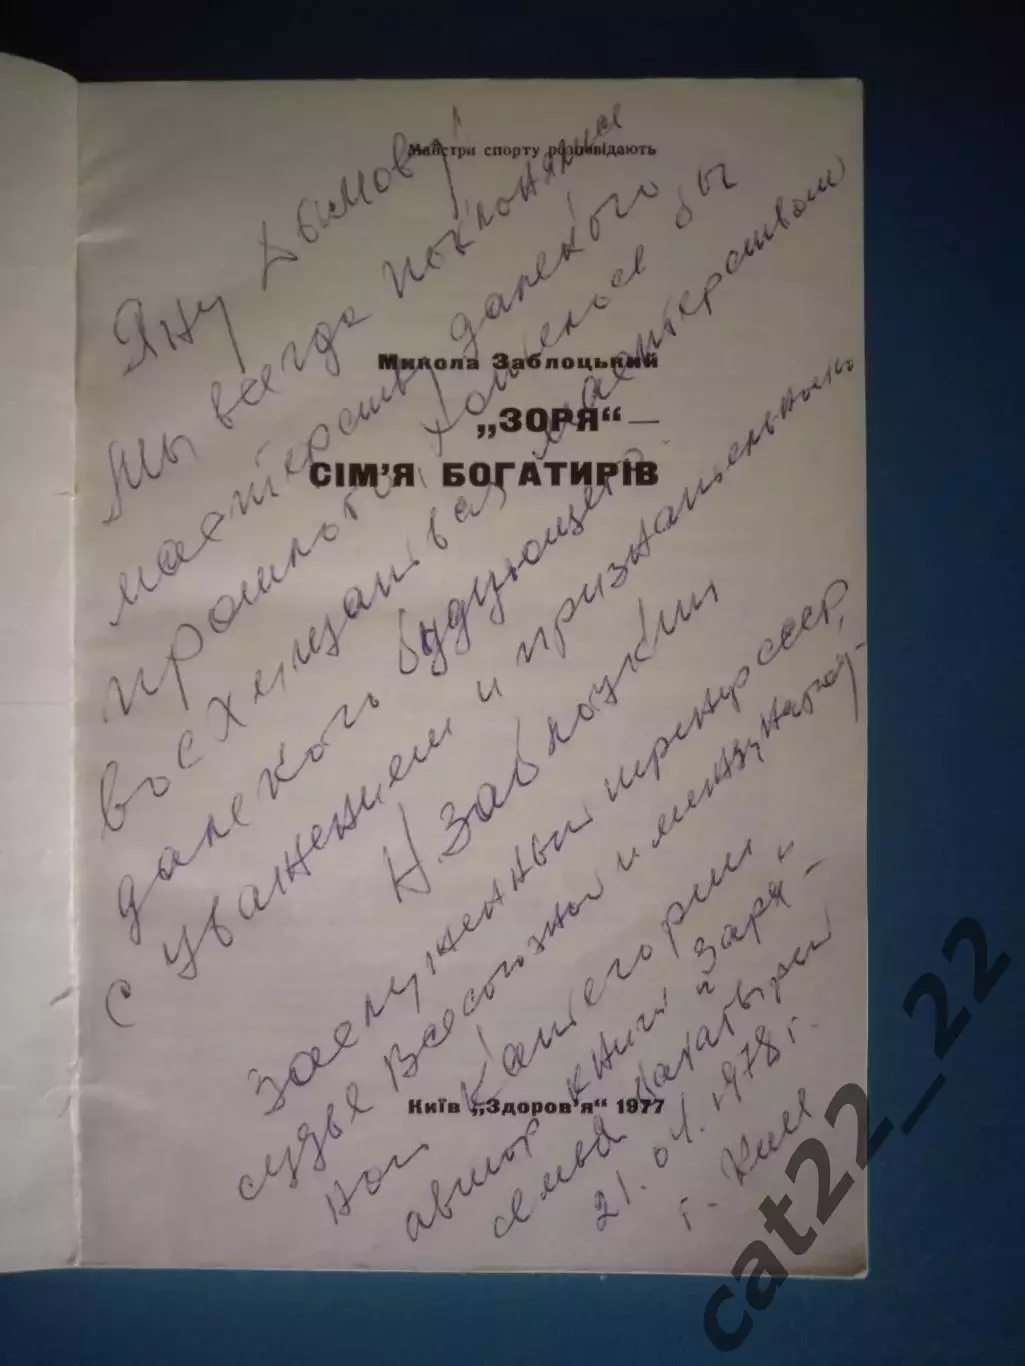 Майстри спорту розповідають
Микола Заблоцький
„ЗОРЯ“ —
СІМ'Я БОГАТИРІВ
Київ „Здоров'я“ 1977
Яну Дымову!
Мы всегда поклонялись
мастерству далекого
прошлого, хотелось бы
восхищаться мастерством
далекого будующего.
с уважением и признательностью
Н. Заблоцкий
Заслуженный тренер СССР,
судья Всесоюзной и международ-
ной категории
автор книги "Заря -
семья богатырей"
21.04.1978 г.
г. Киев
cat22_22